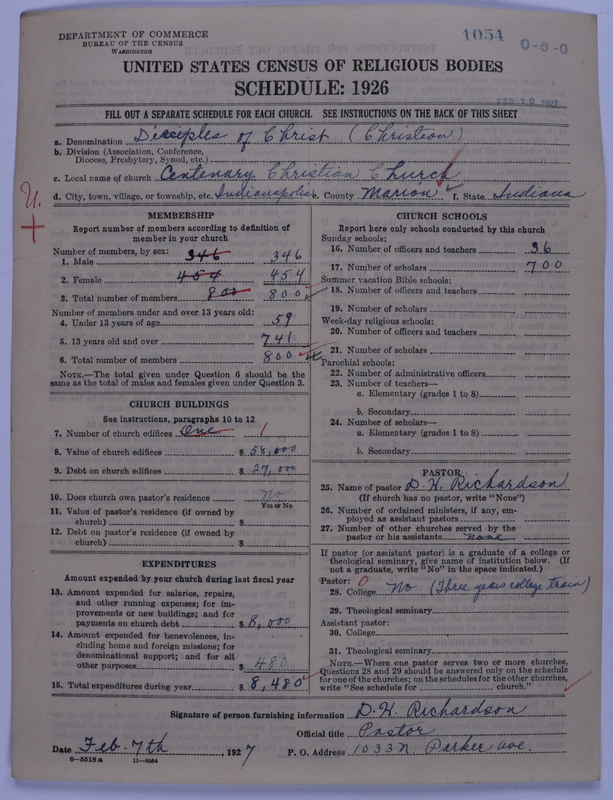 DEPARTMENT OF COMMERCE
BUREAU OF THE CENSUS
WASHINGTON
1054
0-6-0
UNITED STATES CENSUS OF RELIGIOUS BODIES
SCHEDULE: 1926
FEB 10 1927
FILL OUT A SEPARATE SCHEDULE FOR EACH CHURCH. SEE INSTRUCTIONS ON THE BACK OF THIS SHEET
a. Denomination Disciples of Christ (Christian)
b. Division (Association, Conference, Diocese, Presbytery, Synod, etc.)
c. Local name of church Centenary Christian Church
d. City, town, village, or township, etc. Indianapolis e. County Marion f. State Indiana
U.
MEMBERSHIP
Report number of members according to definition of
member in your church
Number of members, by sex:
1. Male 346 346
2. Female 454 454
3. Total number of members 800 800
Number of members under and over 13 years old:
4. Under 13 years of age 59
5. 13 years old and over 741
6. Total number of members 800
NOTE.—The total given under Question 6 should be
same as the total of males and females given under Question 3.
CHURCH BUILDINGS
See instructions, paragraphs 10 to 12
7. Number of church edifices One 1
8. Value of church edifices $ 58,000
9. Debt on church edifices $ 27,000
10. Does church own pastor's residence No
Yes or No
11. Value of pastor's residence (if owned by
church) $
12. Debt on pastor's residence (if owned by
church) $
EXPENDITURES
Amount expended by your church during last fiscal year
13. Amount expended for salaries, repairs,
and other running expenses; for im-
provements or new buildings; and for
payments on church debt $ 8,000
14. Amount expended for benevolences, in-
cluding home and foreign missions; for
denominational support; and for all
other purposes $ 480
15. Total expenditures during year $ 8,480
CHURCH SCHOOLS
Report here only schools conducted by this church
Sunday schools:
16. Number of officers and teachers 36
17. Number of scholars 700
Summer vacation Bible schools:
18. Number of officers and teachers
19. Number of scholars
Week-day religious schools:
20. Number of officers and teachers
21. Number of scholars
Parochial schools:
22. Number of administrative officers
23. Number of teachers—
a. Elementary (grades 1 to 8)
b. Secondary
24. Number of scholars—
a. Elementary (grades 1 to 8)
b. Secondary
PASTOR
25. Name of pastor D. H. Richardson
(If church has no pastor, write "None")
26. Number of ordained ministers, if any, em-
ployed as assistant pastors
27. Number of other churches served by the
pastor or his assistants none
If pastor (or assistant pastor) is a graduate of a college or
theological seminary, give name of institution below. (If
not a graduate, write "No" in the space indicated.)
Pastor: 0
28. College No (Three years college train)
29. Theological seminary
Assistant pastor:
30. College
31. Theological seminary
NOTE.—Where one pastor serves two or more churches,
Questions 28 and 29 should be answered only on the schedule
for one of the churches; on the schedules for the other churches,
write "See schedule for church."
Signature of person furnishing information D. H. Richardson
Official title Pastor
Date Feb. 7th, 1927 P. O. Address 1033 N Parker ave.
8—5518 a 11—9054